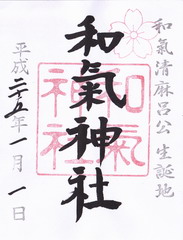 和氣清麻呂公生誕地
和氣神社
和氣
神社
平成二十五年一月一日